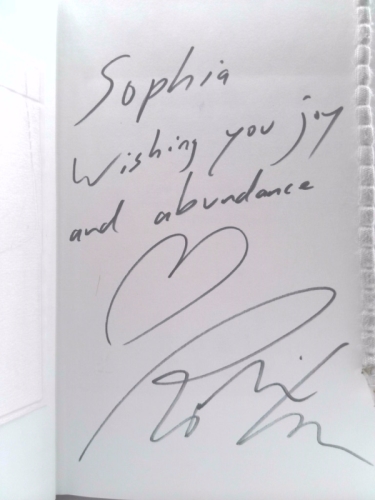 Sophia
Wishing you joy
and abundance